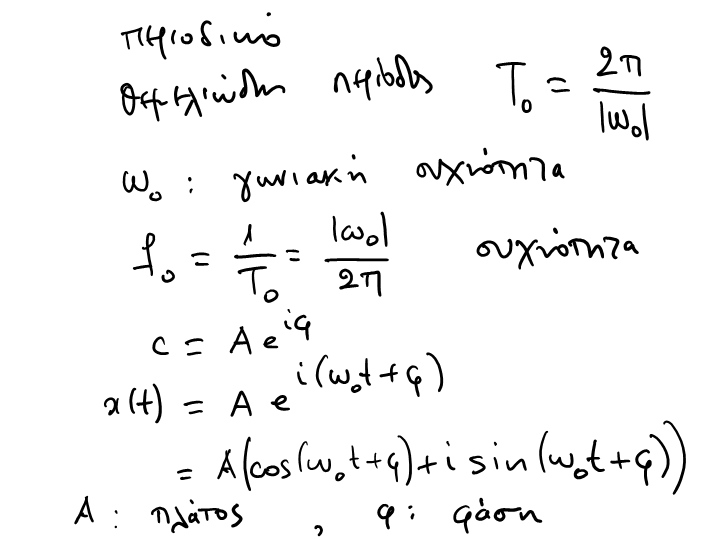 περιοδικό
θεμελιώδης περίοδος T₀ = 2π / |ω₀|
ω₀ : γωνιακή συχνότητα
f₀ = 1/T₀ = |ω₀| / 2π συχνότητα
c = A e^{iφ}
x(t) = A e^{i(ω₀t+φ)}
= A(cos(ω₀t+φ)+i sin(ω₀t+φ))
A : πλάτος , φ : φάση